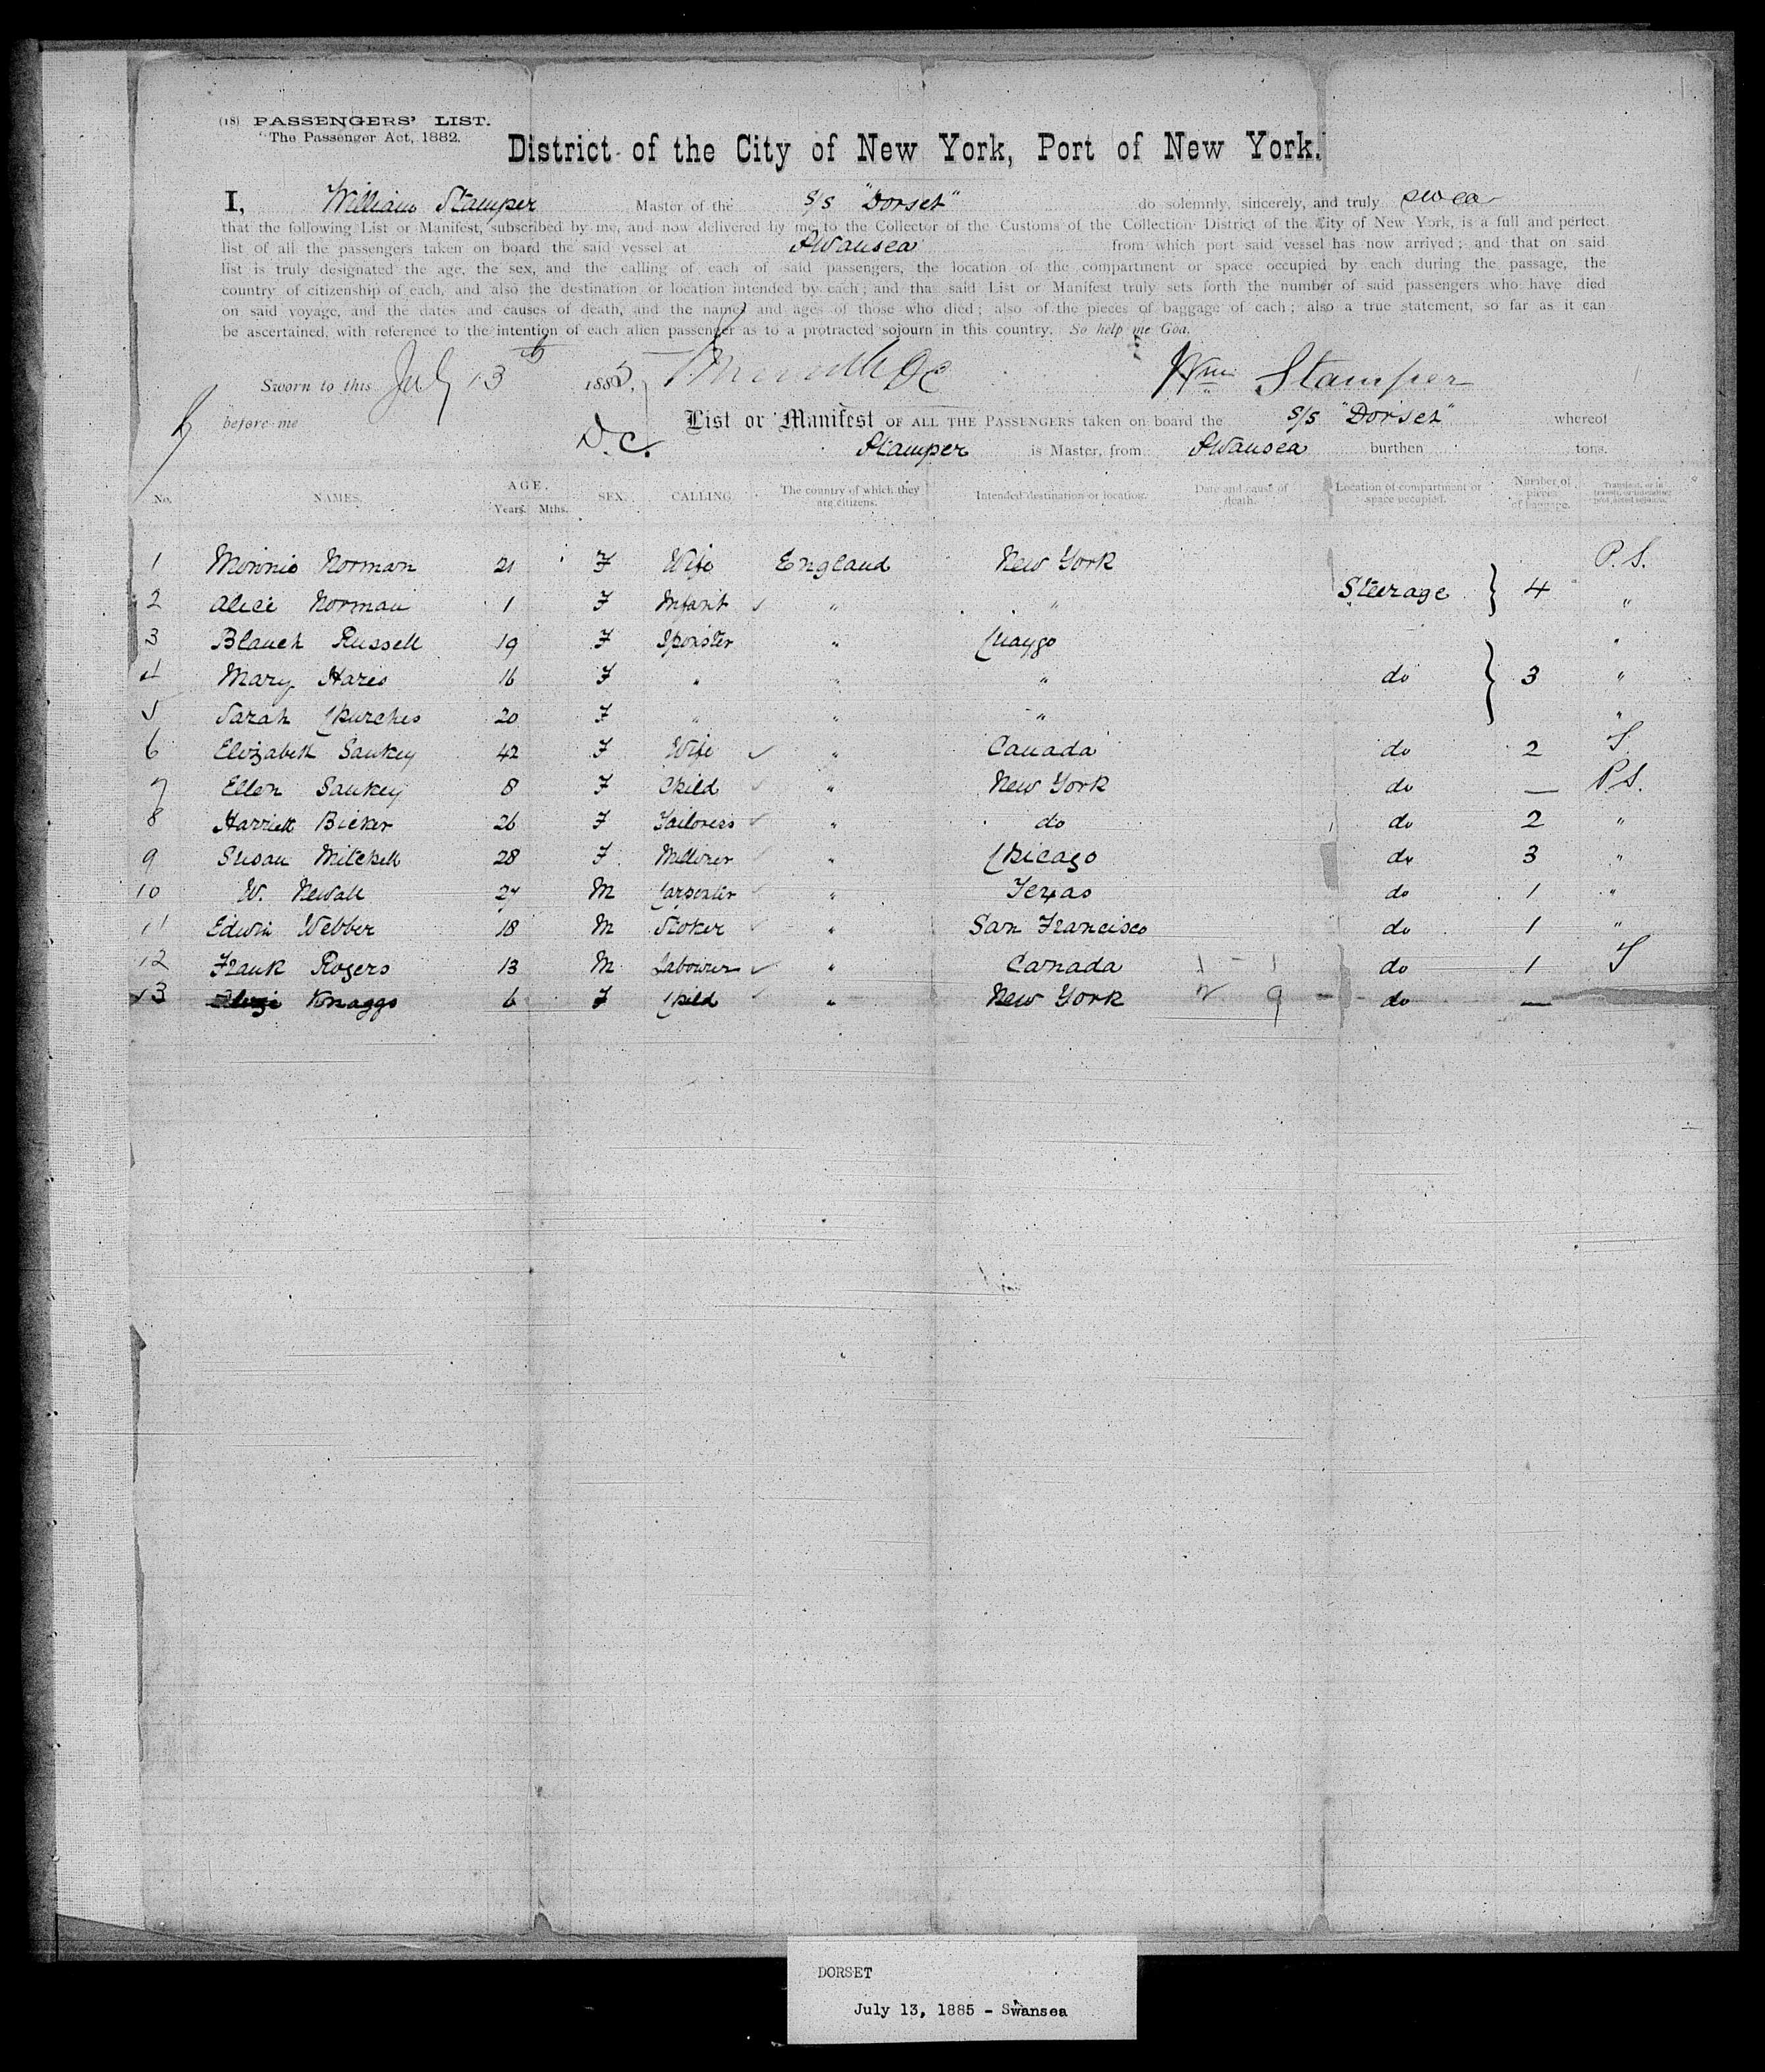 (18) PASSENGERS' LIST.
"The Passenger Act, 1882.
District of the City of New York, Port of New York.
I, William Stamper Master of the S/S "Dorset" do solemnly, sincerely, and truly swear
that the following List or Manifest, subscribed by me, and now delivered by me to the Collector of the Customs of the Collection District of the City of New York, is a full and perfect
list of all the passengers taken on board the said vessel at Swansea from which port said vessel has now arrived; and that on said
list is truly designated the age, the sex, and the calling of each of said passengers, the location of the compartment or space occupied by each during the passage, the
country of citizenship of each, and also the destination or location intended by each; and that said List or Manifest truly sets forth the number of said passengers who have died
on said voyage, and the dates and causes of death, and the names and ages of those who died; also of the pieces of baggage of each; also a true statement, so far as it can
be ascertained, with reference to the intention of each alien passenger as to a protracted sojourn in this country. So help me God.
Sworn to this July 13th 1885, Wm Stamper
before me D.C. List or Manifest OF ALL THE PASSENGERS taken on board the S/S "Dorset" whereof
Stamper is Master, from Swansea burthen tons.
No. NAMES. AGE. Years. Mths. SEX. CALLING. The country of which they are citizens. Intended destination or location. Date and cause of death. Location of compartment or space occupied. Number of pieces of baggage. Transient, or in transit, or intending protracted sojourn.
1 Minnie Norman 21 F Wife England New York P.S.
2 Alice Norman 1 F Infant " " Steerage } 4 "
3 Blanch Russell 19 F Spinster " "
4 Mary Hares 16 F " " " do } 3 "
5 Sarah Churches 20 F " " " "
6 Elizabeth Sankey 42 F Wife " Canada do 2 T
7 Ellen Sankey 8 F Child " New York do — P.S.
8 Harriett Bicker 26 F Tailoress " do do 2 "
9 Susan Mitchell 28 F Milliner " Chicago do 3 "
10 W. Newall 27 M Carpenter " Texas do 1 "
11 Edwin Webber 18 M Stoker " San Francisco do 1 "
12 Frank Rogers 13 M Labourer " Canada do 1 T
13 Knaggs 6 F Child " New York do —
DORSET
July 13, 1885 - Swansea